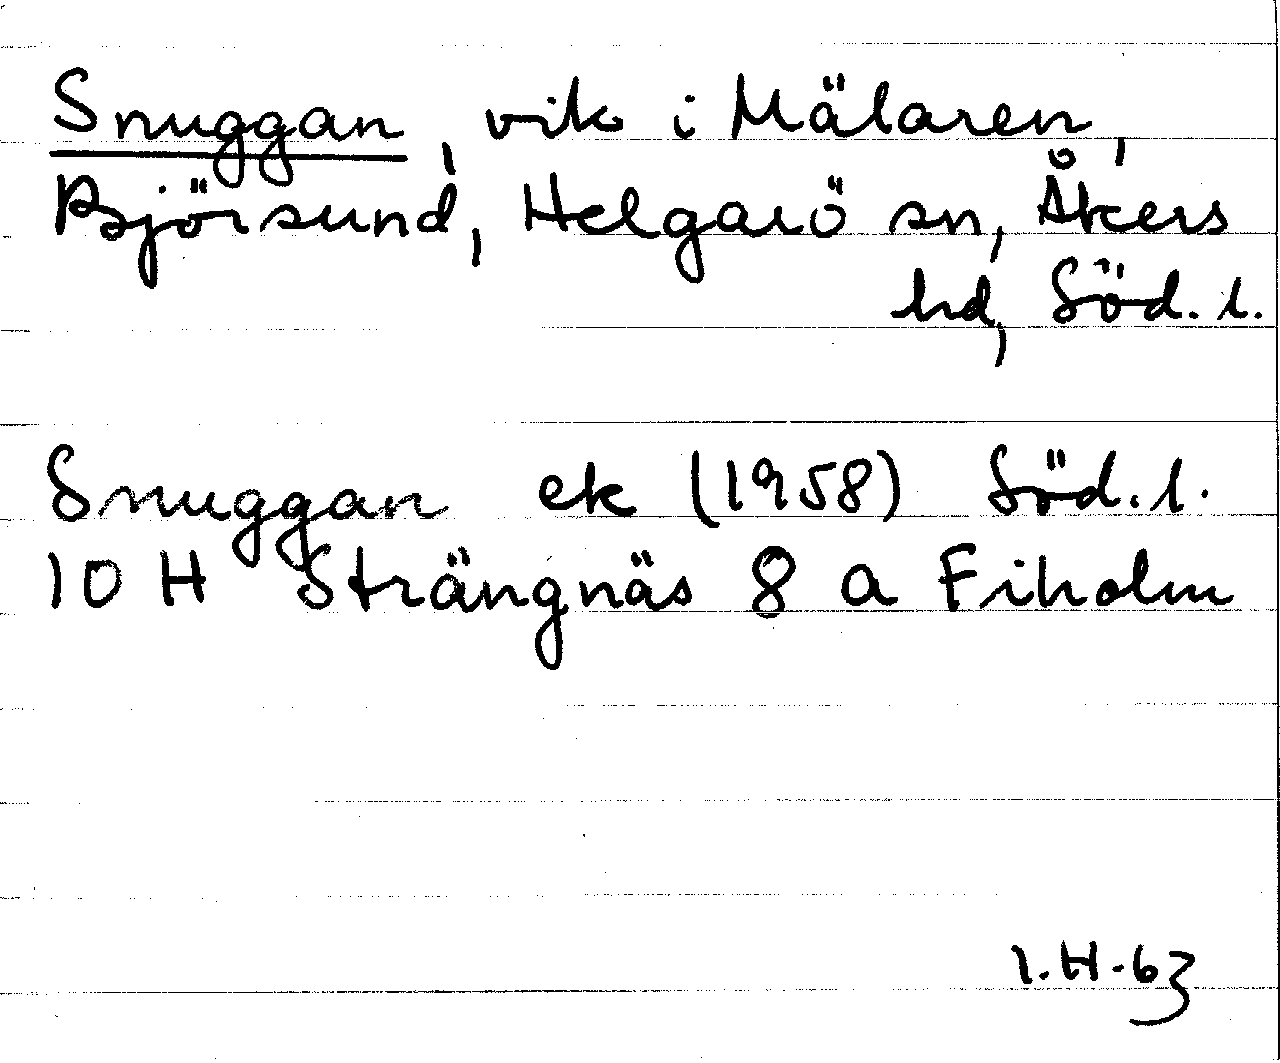 Snuggan, vik i Mälaren,
Björsund, Helgarö sn, Åkers
hd, Söd. l.
Snuggan ek (1958) Söd. l.
10 H Strängnäs 8 a Fiholm
I.H-63